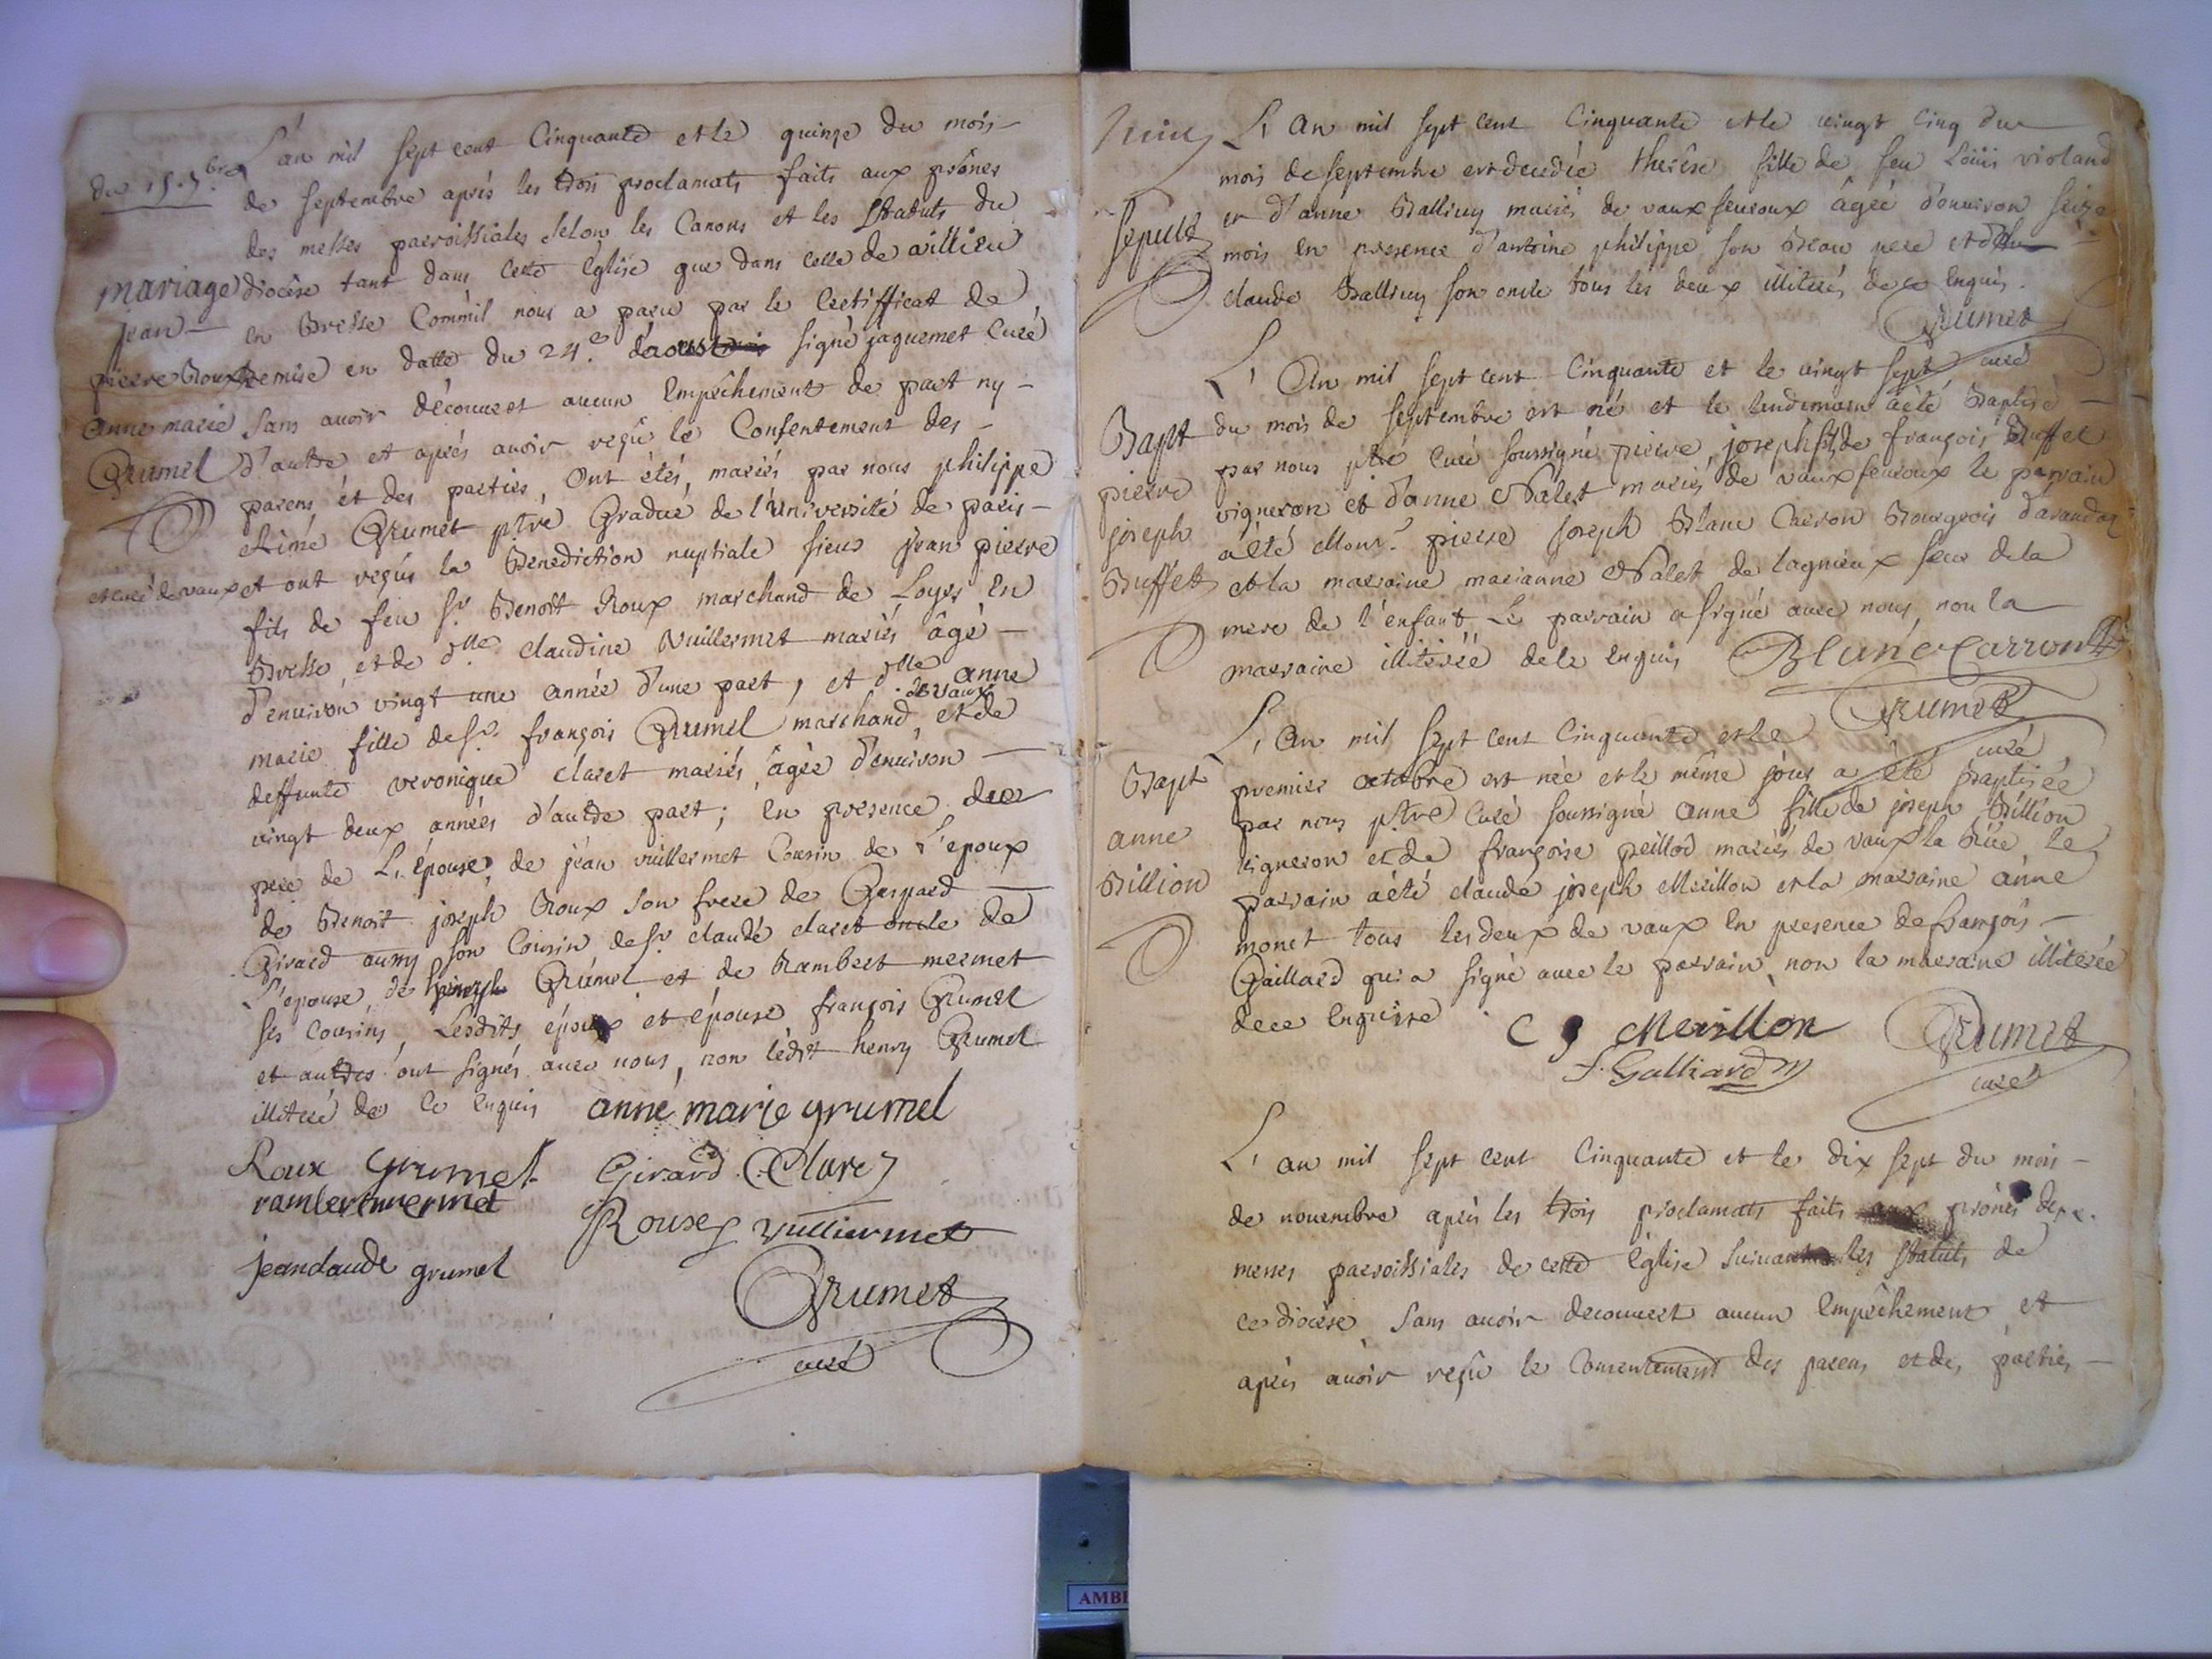 du 15. 7.bre
mariage
jean
pierre Roux
anne marie
Grumel
et curé de vaux
L'an mil sept cent Cinquante et le quinze du mois
de septembre aprés les trois proclamats faits aux prônes
des messes parroissiales selon les Canons et les Statuts du
diocése tant dans cette église que dans celle de villieu
en Bresse Comm'il nous a paru par le Certifficat de
remise en datte du 24.e d'aoust signé jaquemet Curé
sans avoir découvert aucun Empêchement de part ny
d'autre et aprés avoir reçû le Consentement des
parens et des parties, ont étés, mariés par nous philippe
Aimé Grumet ptre Gradué de l'université de paris
et ont reçus la Benediction nuptiale sieur jean pierre
fils de feu sr Benoit Roux marchand de Loyes en
Bresse, et de dlle claudine Vuillermet mariés âgé
d'environ vingt une année d'une part, et dlle anne
marie fille de sr françois Grumel marchand de vaux et de
deffunte veronique claret mariés âgée d'environ
vingt deux années d'autre part; en presence du
pere de L'épouse, de jéan vuillermet Cousin de L'epoux
de Benoit joseph Roux son frere de Gaspard
Girard aussy son Cousin de sr claude claret oncle de
L'epouse, de Grumel et de Rambert mermet
ses cousins, Lesdits époux et épouse françois Grumel
et autres ont signés avec nous, non lédit henry Grumel
illiteré de ce enquis anne marie grumel
Roux grumel Girard Claret
rambert mermet Roux vulliermet
jean claude grumel
Grumet
curé
Sepult
L'an mil sept cent Cinquante et le vingt cinq du
mois de septembre est decedée therêse fille de feu Loüis violand
et d'anne Ballivy mariés de vaux fevroux âgée d'environ seize
mois en presence d'antoine philippe son Beau pere et de
claude Ballivy son oncle tous les deux illiterés de ce enquis.
Grumet
curé
Bapt
pierre
joseph
Buffet
L'An mil sept cent Cinquante et le vingt sept
du mois de septembre est né et le lendemain a été Baptisé
par nous ptre curé soussigné pierre, joseph fils de françois Buffet
vigneron et d'anne Nalet mariés de vaux fevroux le parrain
a été Monsr pierre joseph Blanc Carron Bourgeois d'arandaz
et la marraine marianne Nalet de lagnieux sœur de la
mere de l'enfant Le parrain a signé avec nous, non la
marraine illiterée de ce enquis Blanc Carron
Grumet
curé
Bapt
anne
Billion
L'An mil sept cent Cinquante et le
premier octobre est née et le même jour a été Baptisée
par nous ptre Curé soussigné anne fille de joseph Billion
vigneron et de françoise peillod mariés de vaux la Rüe le
parrain a été claude joseph Merillon et la marraine anne
monet tous les deux de vaux en presence de françois
Gaillard qui a signé avec le parrain, non la marraine illiterée
de ce enquise C J Merillon Grumet
f. Galliard curé
L'an mil sept cent Cinquante et le dix sept du mois
de novembre aprés les trois proclamats faits aux prônes des
messes parroissiales de cette église suivant les statuts de
ce diocése sans avoir decouvert aucun Empêchement et
aprés avoir reçû le Consentement des parens et des parties
AMB